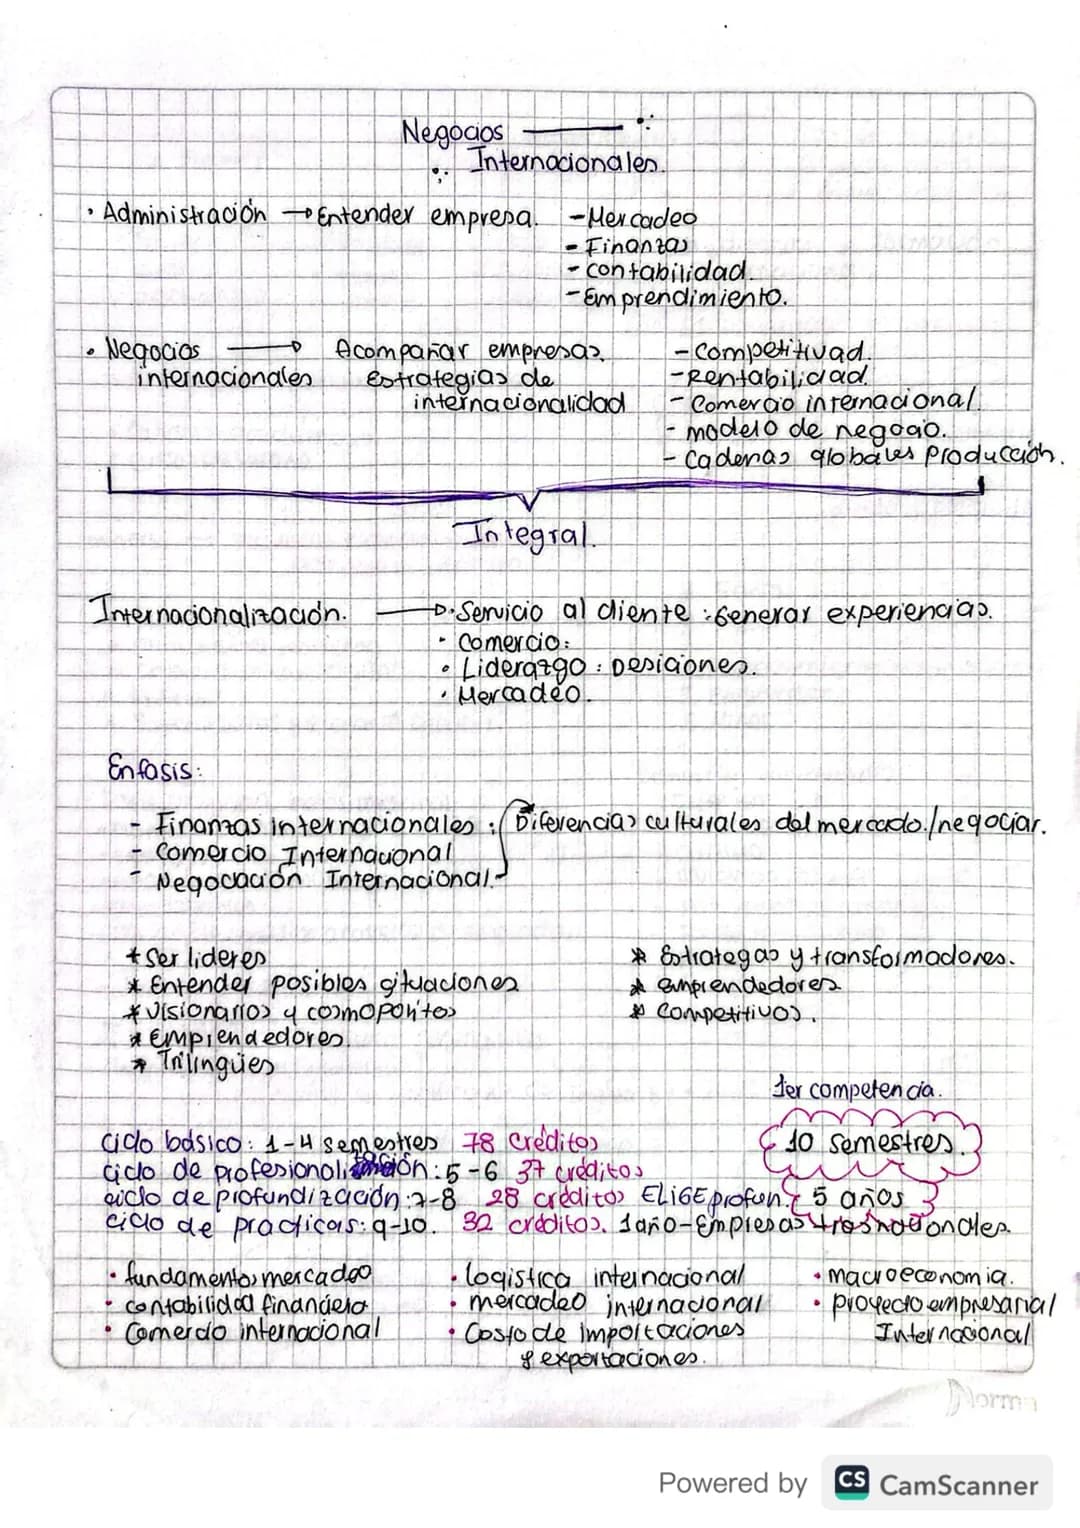 Negocios
Internacionales.
· Administración → Entender empresa. - Mercadeo
- Finanzas
- contabilidad.
- Emprendimiento.
· Negocios → Acompañar empresas. - competitivad.
internacionales Estrategias de - Rentabilidad.
internacionalidad - Comercio internacional.
- modelo de negocio.
- Cadenas globales Producción.
Integral.
Internacionalización. → · Servicio al cliente : Generar experiencias.
· Comercio:
· Liderazgo : Desiciones.
· Mercadeo.
Enfasis:
- Finanzas internacionales : Diferencias culturales del mercado./negociar.
- Comercio Internacional
- Negociación Internacional.
* Ser lideres * Estrategas y transformadores.
* Entender posibles situaciones * emprendedores
* visionarios y cosmopolitos * Competitivos.
* Emprendedores
* Trilingües
1er competencia.
Ciclo básico: 1-4 semestres 78 créditos 10 semestres.
Ciclo de profesionalización: 5-6 37 créditos
ciclo de profundización: 7-8 28 créditos ELIGE profun. 5 años
ciclo de practicas: 9-10. 32 créditos. 1 año - Empresas trasnacionales
· fundamentos mercadeo · logistica internacional · macroeconomia.
· contabilidad financiera · mercadeo internacional · proyecto empresarial
· Comercio internacional · Costo de importaciones Internacional
y exportaciones.
Norma
Powered by CS CamScanner